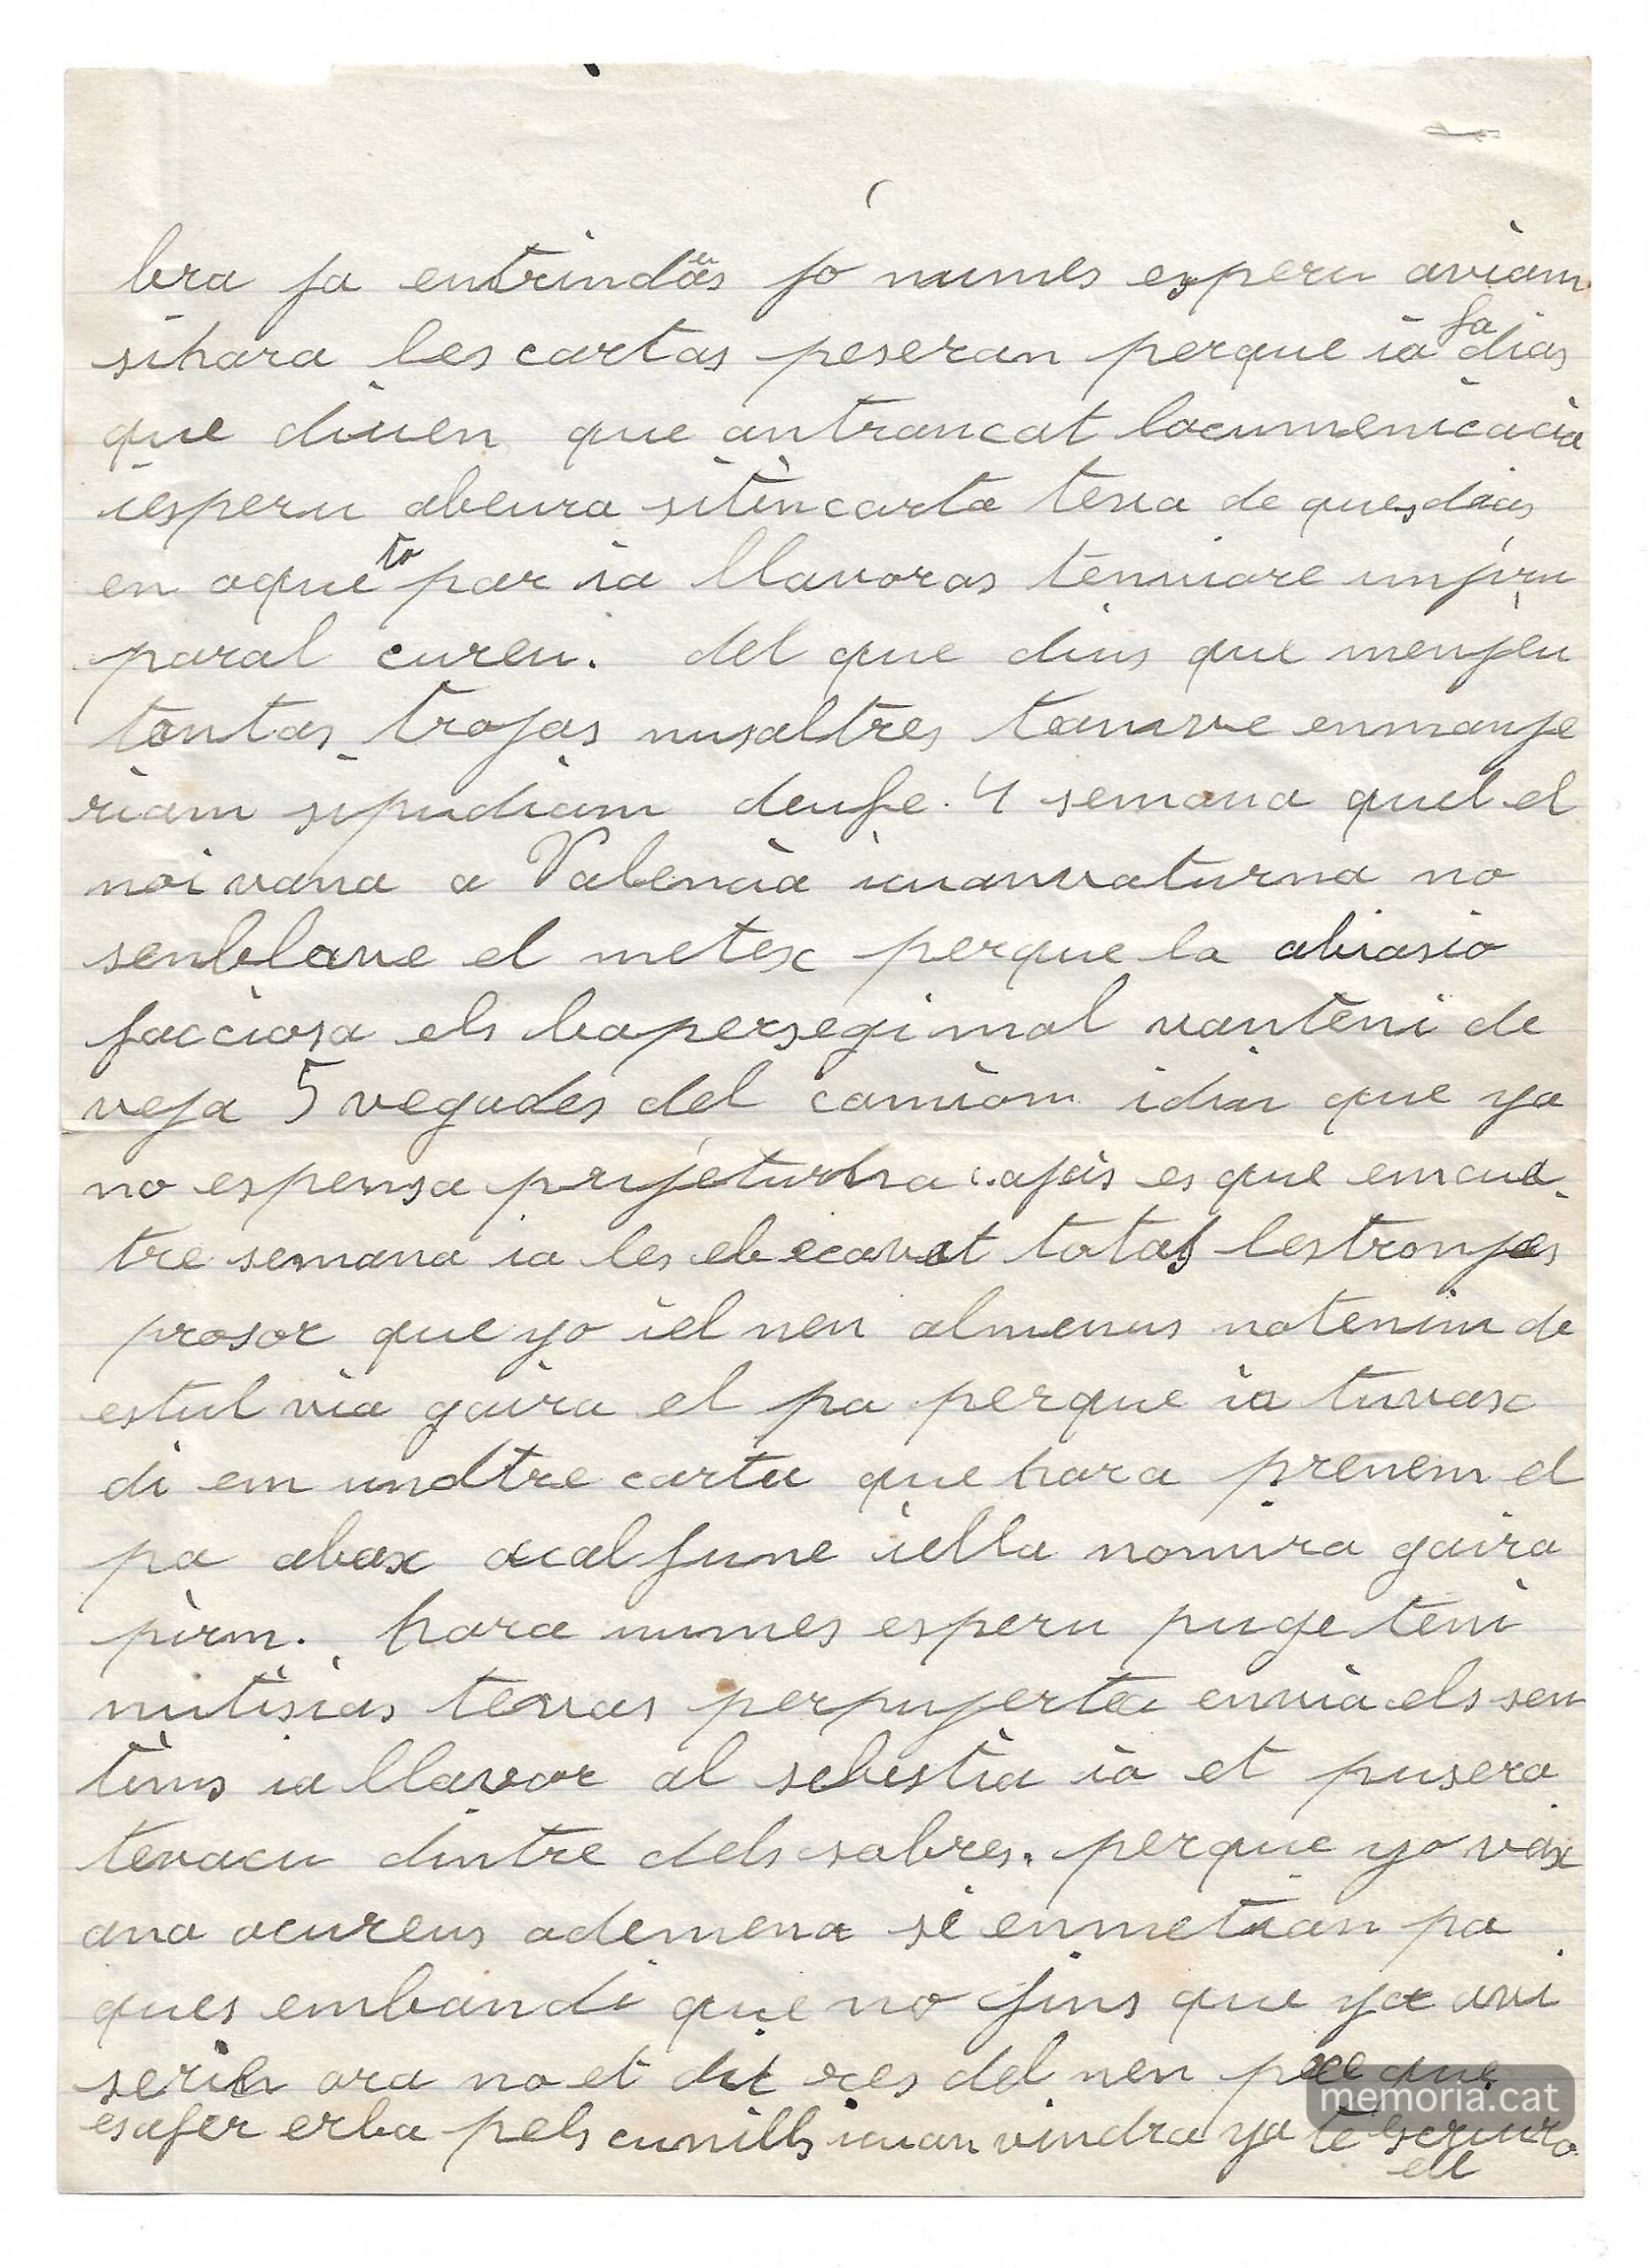 bra ja entrindas jo numes esperu aviam
sihara les cartas peseran perque ia fa dias
que diuen que antrancat lacumenicacia
iesperu abeura sitincarta teva de quesdias
en aque to par ia llavoras tenviare un jiru
paral cureu. del que dius que menjeu
tantas trojas nusaltres tamve enmanje
riam sipudiam deufe. 4 semana quel el
noi vana a Valencia iuanvaturna no
senblave el metex perque la abiasio
facciosa els bapersegi mal vanteni de
veja 5 vegades del camiom idiu que ya
no espensa prujeturna ajis es que emcua
tre semana ia les eb ecavat totas lestronjes
prosor que yo iel nen almenus notenim de
estul via gaira el pa perque ia tuvax
di em unaltre carta que hara prenem el
pa abax acal june iella nomira gaira
pirm. hara numes esperu puge teni
nutisias tevas perpujerta envia els sen
tims ia llavor al sebestia ia et pusera
tevacu dintre dels sabres. perque yo vax
ana acureus ademena si enmetian pa
ques embandi que no fins que ya avi
serien ara no et dic res del nen per que
esafer erba pels cunills iuan vindra ya te escriura
ell
memoria.cat